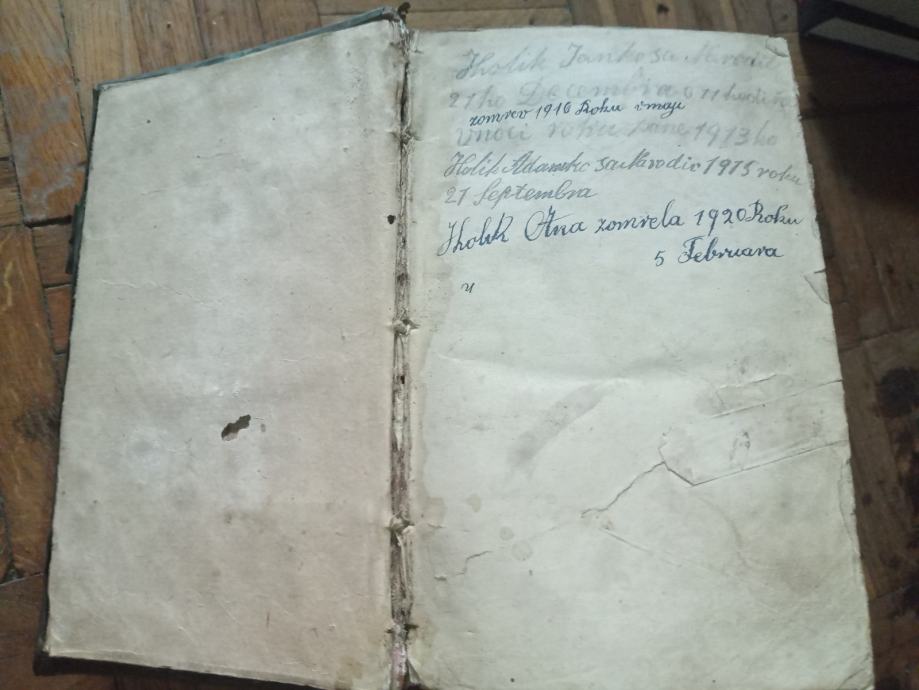 Holik Janko sa Narodil
21ho Decembra o 11 hodiňe
zomrev 1916 Roku vmaji
vnoci roku pane 1913ho
Holik Adamko sa Narodic 1915 roku
21 Septembra
Holik Ana zomrela 1920 Roku
5 Februara